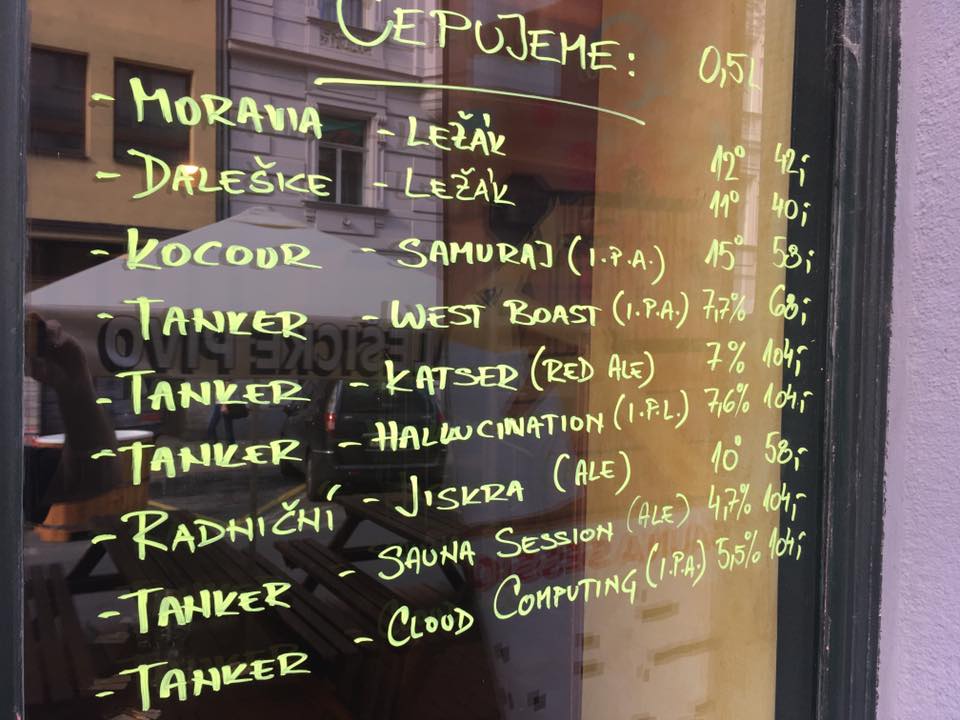 ČEPUJEME: 0,5L
- MORAVIA - LEŽÁK 12° 42,-
- DALEŠKE - LEŽÁK 11° 40,-
- KOCOUR - SAMURAJ (I.P.A.) 15° 58,-
- TANKER - WEST BOAST (I.P.A.) 7,7% 68,-
- TANKER - KATSER (RED ALE) 7% 104,-
- TANKER - HALLUCINATION (I.P.L.) 7,6% 104,-
- RADNIČNÍ - JISKRA (ALE) 10° 58,-
- TANKER - SAUNA SESSION (ALE) 4,7% 104,-
- TANKER - CLOUD COMPUTING (I.P.A.) 5,5% 104,-
PIVO